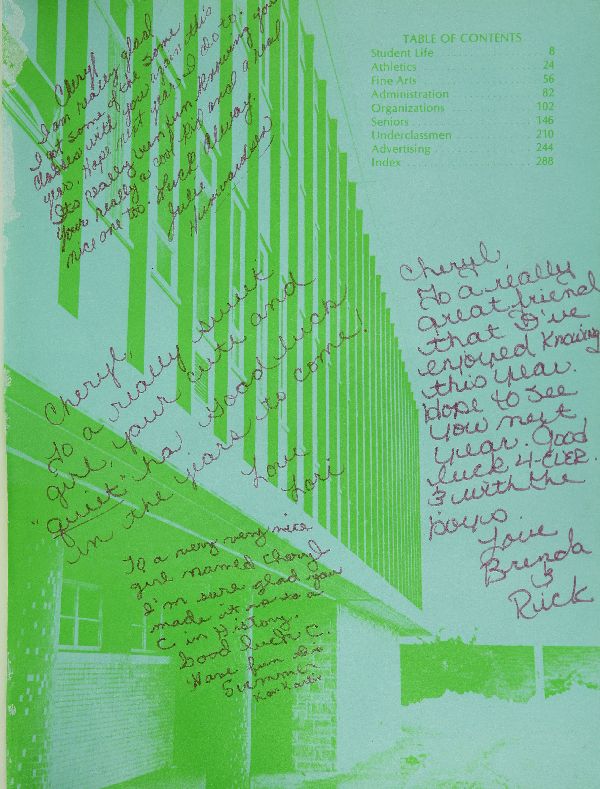 TABLE OF CONTENTS
Student Life 8
Athletics 24
Fine Arts 56
Administration 82
Organizations 102
Seniors 146
Underclassmen 210
Advertising 244
Index 288
Cheryl
I am really glad
I got some of the same
classes with you again this
year. Hope next year I do to.
It's really been fun knowing you
Your really a cool kid and a real
nice one to. Luck Always.
Julie
Cheryl,
To a really sweet
girl, your cute and
"quiet" ha Good luck
in the years to come!
Love
Lori
Cheryl,
To a really
great friend
that I've
enjoyed knowing
this year.
Hope to see
you next
year. Good
luck 4-EVER.
& with the
boys.
Love
Brenda
&
Rick
To a very very nice
girl named Cheryl
I'm sure glad you
made it as to a
C in History.
Good luck C.
Have fun
Summer